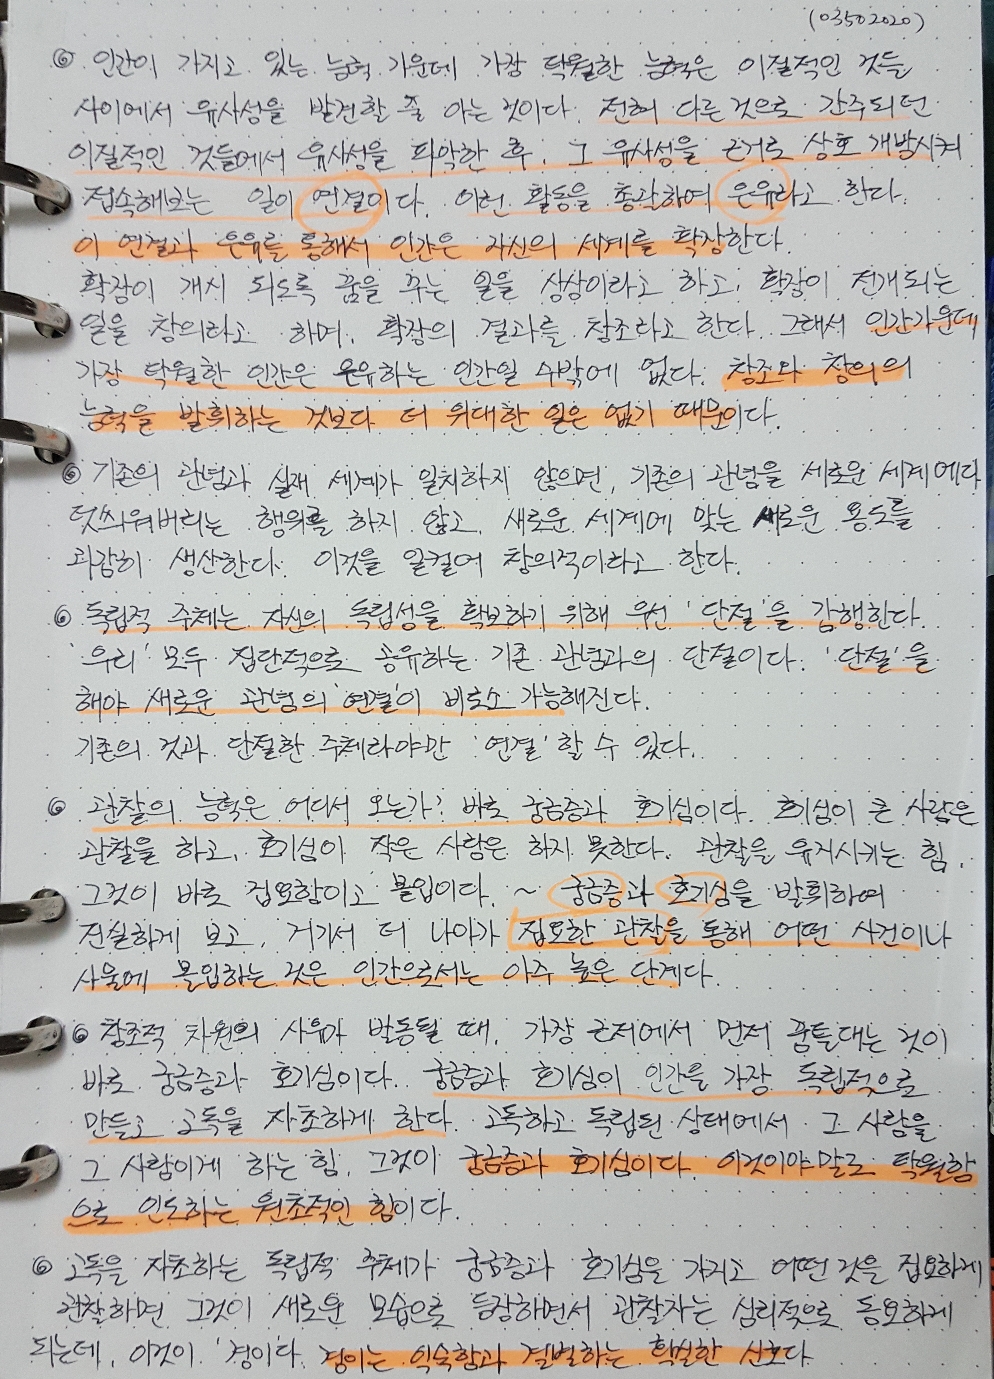 (03502020)
◎ 인간이 가지고 있는 능력 가운데 가장 탁월한 능력은 이질적인 것들
사이에서 유사성을 발견할 줄 아는 것이다. 전혀 다른 것으로 간주되던
이질적인 것들에서 유사성을 파악한 후, 그 유사성을 근거로 상호 개방시켜
접속해보는 일이 연결이다. 이런 활동을 총괄하여 은유라고 한다.
이 연결과 은유를 통해서 인간은 자신의 세계를 확장한다.
확장이 개시 되도록 꿈을 꾸는 일을 상상이라고 하고, 확장이 전개되는
일을 창의라고 하며, 확장의 결과를 창조라고 한다. 그래서 인간가운데
가장 탁월한 인간은 은유하는 인간일 수밖에 없다. 창조와 창의의
능력을 발휘하는 것보다 더 위대한 일은 없기 때문이다.
◎ 기존의 관념과 실재 세계가 일치하지 않으면, 기존의 관념을 새로운 세계에다
덧씌워버리는 행위를 하지 않고, 새로운 세계에 맞는 새로운 용도를
과감히 생산한다. 이것을 일컬어 창의적이라고 한다.
◎ 독립적 주체는 자신의 독립성을 확보하기 위해 우선 '단절'을 감행한다.
'우리' 모두 집단적으로 공유하는 기존 관념과의 단절이다. '단절'을
해야 새로운 관념의 '연결'이 비로소 가능해진다.
기존의 것과 단절한 주체라야만 '연결'할 수 있다.
◎ 관찰의 능력은 어디서 오는가? 바로 궁금증과 호기심이다. 호기심이 큰 사람은
관찰을 하고, 호기심이 작은 사람은 하지 못한다. 관찰을 유지시키는 힘,
그것이 바로 집요함이고 몰입이다. ~ 궁금증과 호기심을 발휘하여
진실하게 보고, 거기서 더 나아가 집요한 관찰을 통해 어떤 사건이나
사물에 몰입하는 것은 인간으로서는 아주 높은 단계다.
◎ 창조적 차원의 사유가 발동될 때, 가장 근저에서 먼저 꿈틀대는 것이
바로 궁금증과 호기심이다. 궁금증과 호기심이 인간을 가장 독립적으로
만들고 고독을 자초하게 한다. 고독하고 독립된 상태에서 그 사람을
그 사람이게 하는 힘, 그것이 궁금증과 호기심이다. 이것이야말로 탁월함
으로 인도하는 원초적인 힘이다.
◎ 고독을 자초하는 독립적 주체가 궁금증과 호기심을 가지고 어떤 것을 집요하게
관찰하면 그것이 새로운 모습으로 등장하면서 관찰자는 심리적으로 동요하게
되는데, 이것이 '경이'다. 경이는 익숙함과 결별하는 확실한 신호다.